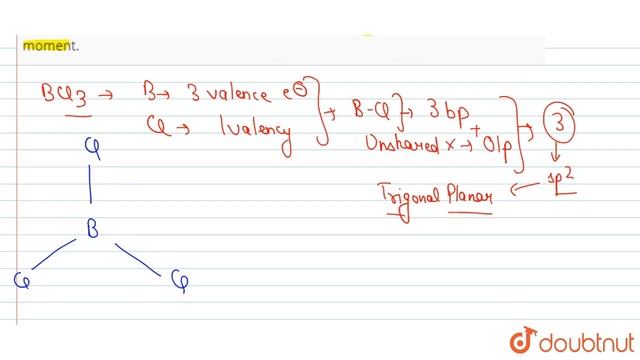 moment.
BCl3 → B→ 3 valence e⊖
Cl → 1 valency
→ B-Cl → 3 bp
+
Unshared x → 0 lp
→ 3
sp2
Trigonal Planar
Cl
B
Cl Cl
doubtnut